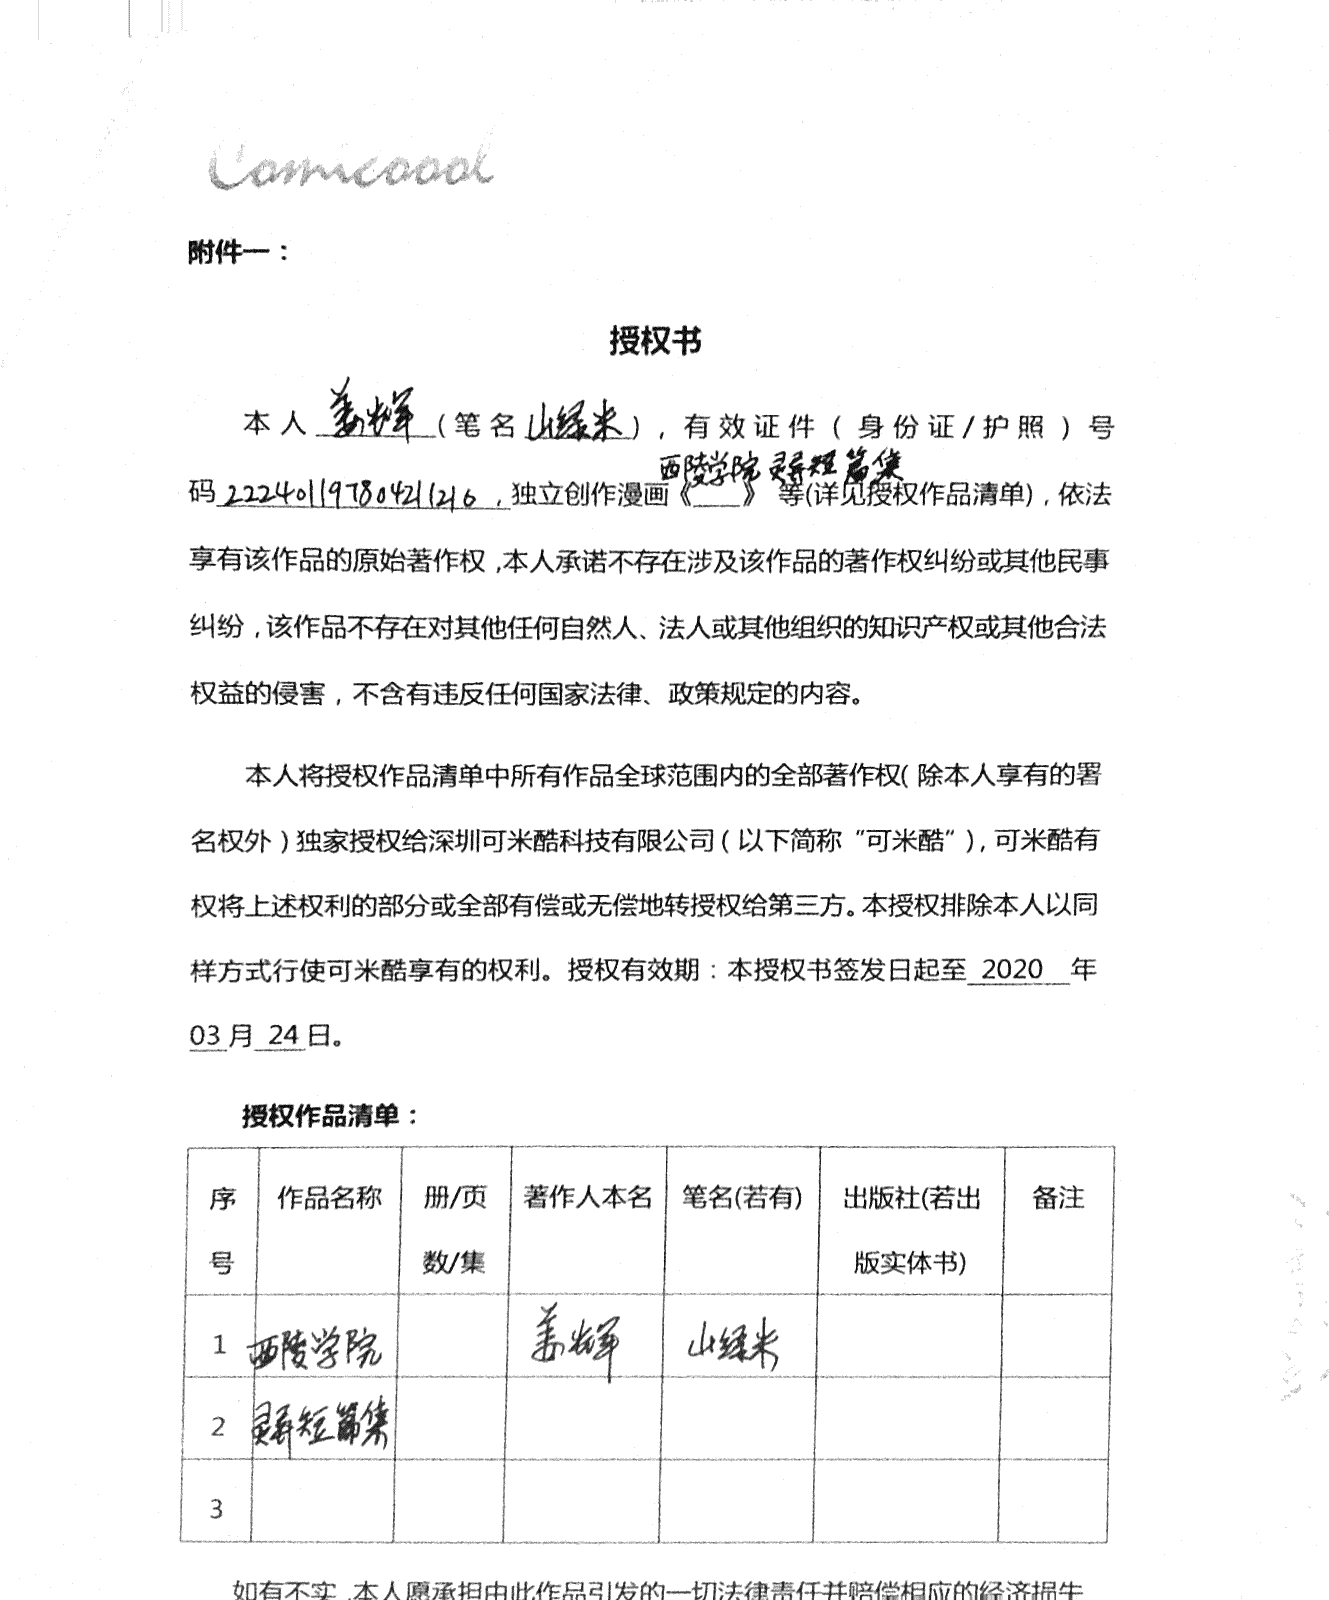 Comicoool
附件一：
授权书
本人 姜光辉 (笔名 山绿米)，有效证件（身份证/护照）号
西陵学院 灵异短篇集
码 222401197804211216，独立创作漫画《___》 等(详见授权作品清单)，依法
享有该作品的原始著作权，本人承诺不存在涉及该作品的著作权纠纷或其他民事
纠纷，该作品不存在对其他任何自然人、法人或其他组织的知识产权或其他合法
权益的侵害，不含有违反任何国家法律、政策规定的内容。
本人将授权作品清单中所有作品全球范围内的全部著作权（除本人享有的署
名权外）独家授权给深圳可米酷科技有限公司（以下简称“可米酷”），可米酷有
权将上述权利的部分或全部有偿或无偿地转授权给第三方。本授权排除本人以同
样方式行使可米酷享有的权利。授权有效期：本授权书签发日起至 2020 年
03 月 24 日。
授权作品清单：
序号 作品名称 册/页数/集 著作人本名 笔名(若有) 出版社(若出版实体书) 备注
1 西陵学院 姜光辉 山绿米
2 灵异短篇集
3
如有不实，本人愿承担由此作品引发的一切法律责任并赔偿相应的经济损失